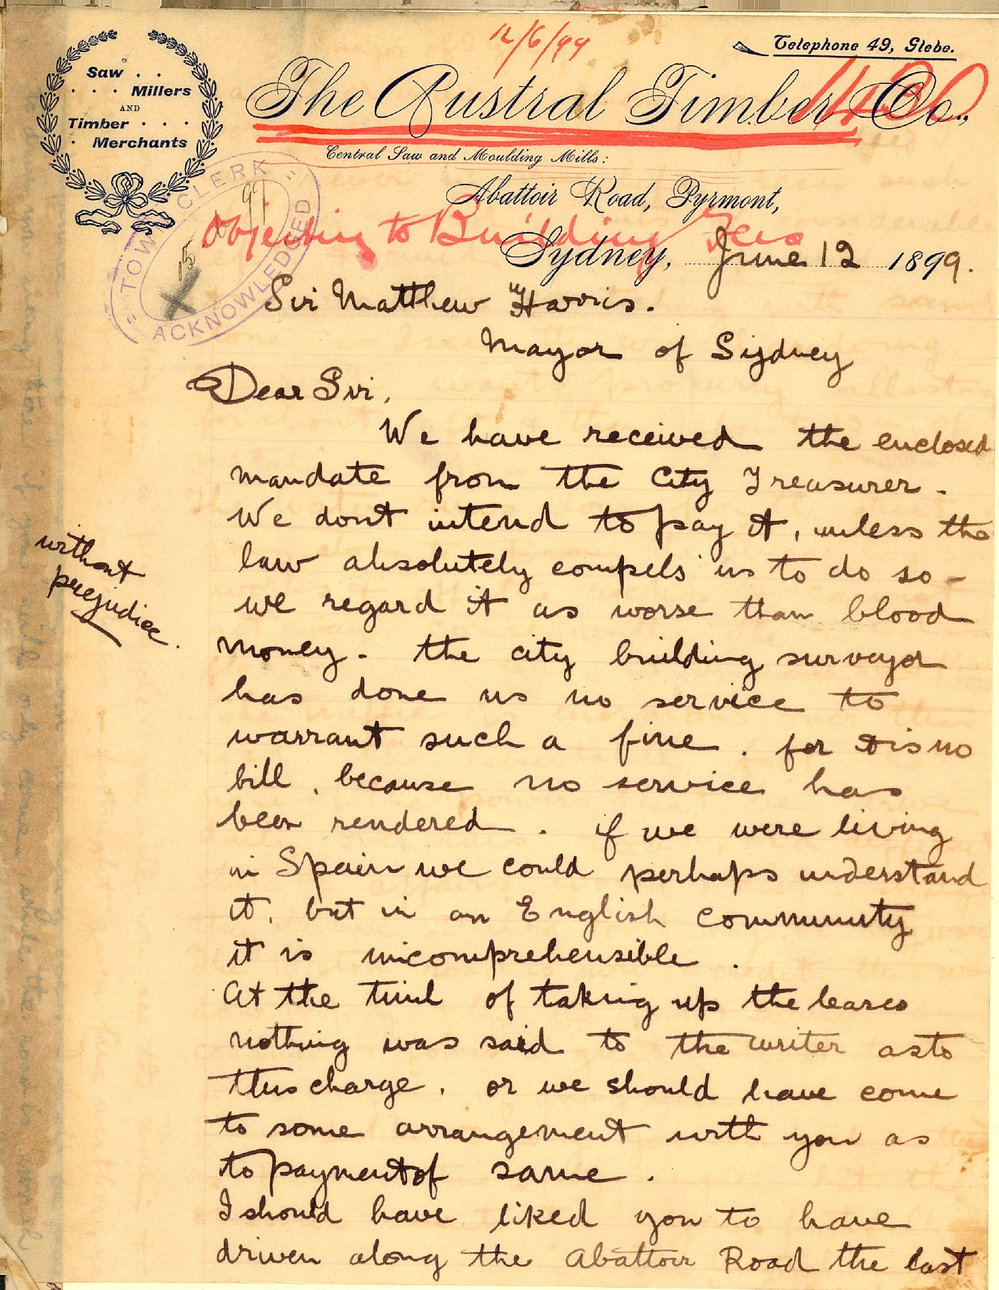 12/6/99
Telephone 49, Glebe.
1430
Saw . .
. . . Millers
AND
Timber . . .
. Merchants
The Austral Timber Co.,
Central Saw and Moulding Mills:
Abattoir Road, Pyrmont,
TOWN CLERK
97
15
ACKNOWLEDGED
Objecting to Building Fees
Sydney, June 12 1899.
Sir Matthew Harris.
Mayor of Sydney
Dear Sir,
We have received the enclosed
mandate from the City Treasurer.
We dont intend to pay it, unless the
law absolutely compels us to do so -
without
prejudice.
we regard it as worse than blood
money. the city building surveyor
has done us no service to
warrant such a fine. for tis no
bill, because no service has
been rendered. if we were living
in Spain we could perhaps understand
it, but in an English community
it is incomprehensible.
At the time of taking up the leases
nothing was said to the writer as to
this charge, or we should have come
to some arrangement with you as
to payment of same.
I should have liked you to have
driven along the Abattoir Road the last